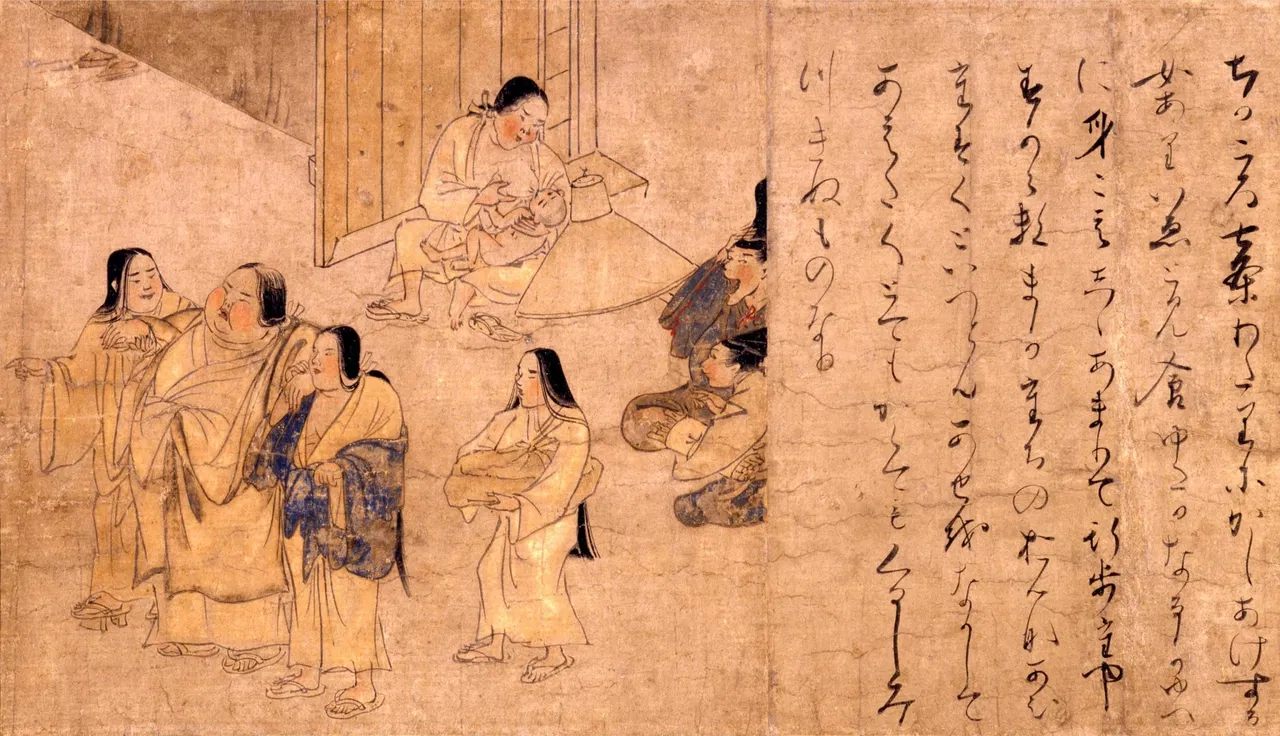 ちかころ七条わたりにかしあけする
女ありいゑとみ食ゆたかなるかゆへ
に身こえしゝあまりて行歩たや
すからすまかたちのおんなあひ
たすくといへともあせをなかして
あえきくとてもかくてもくるしみ
つきぬものなり